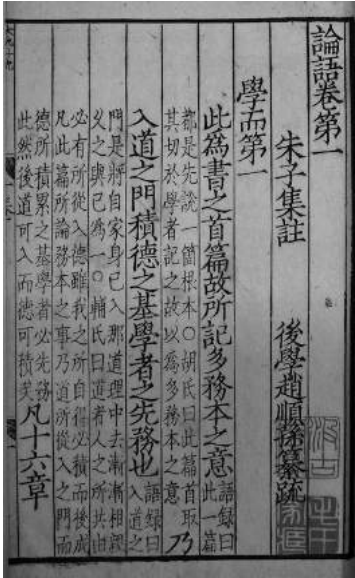 論語卷第一
朱子集註
後學趙順孫纂疏
學而第一
此為書之首篇故所記多務本之意
語録曰
此一篇
都是先說一箇根本○胡氏曰此篇首取
其切於學者記之故以爲多務本之意
乃
入道之門積德之基學者之先務也
語録曰
入道之
門是將自家身己入那道理中去漸漸相親
义之與己為一○輔氏曰道者人之所共由
必有所從入德雖我之所自得必積而後成
凡此篇所論務本之事乃道所從入之門而
德所積累之基學者必先務
此然後道可入而德可積矣
凡十六章